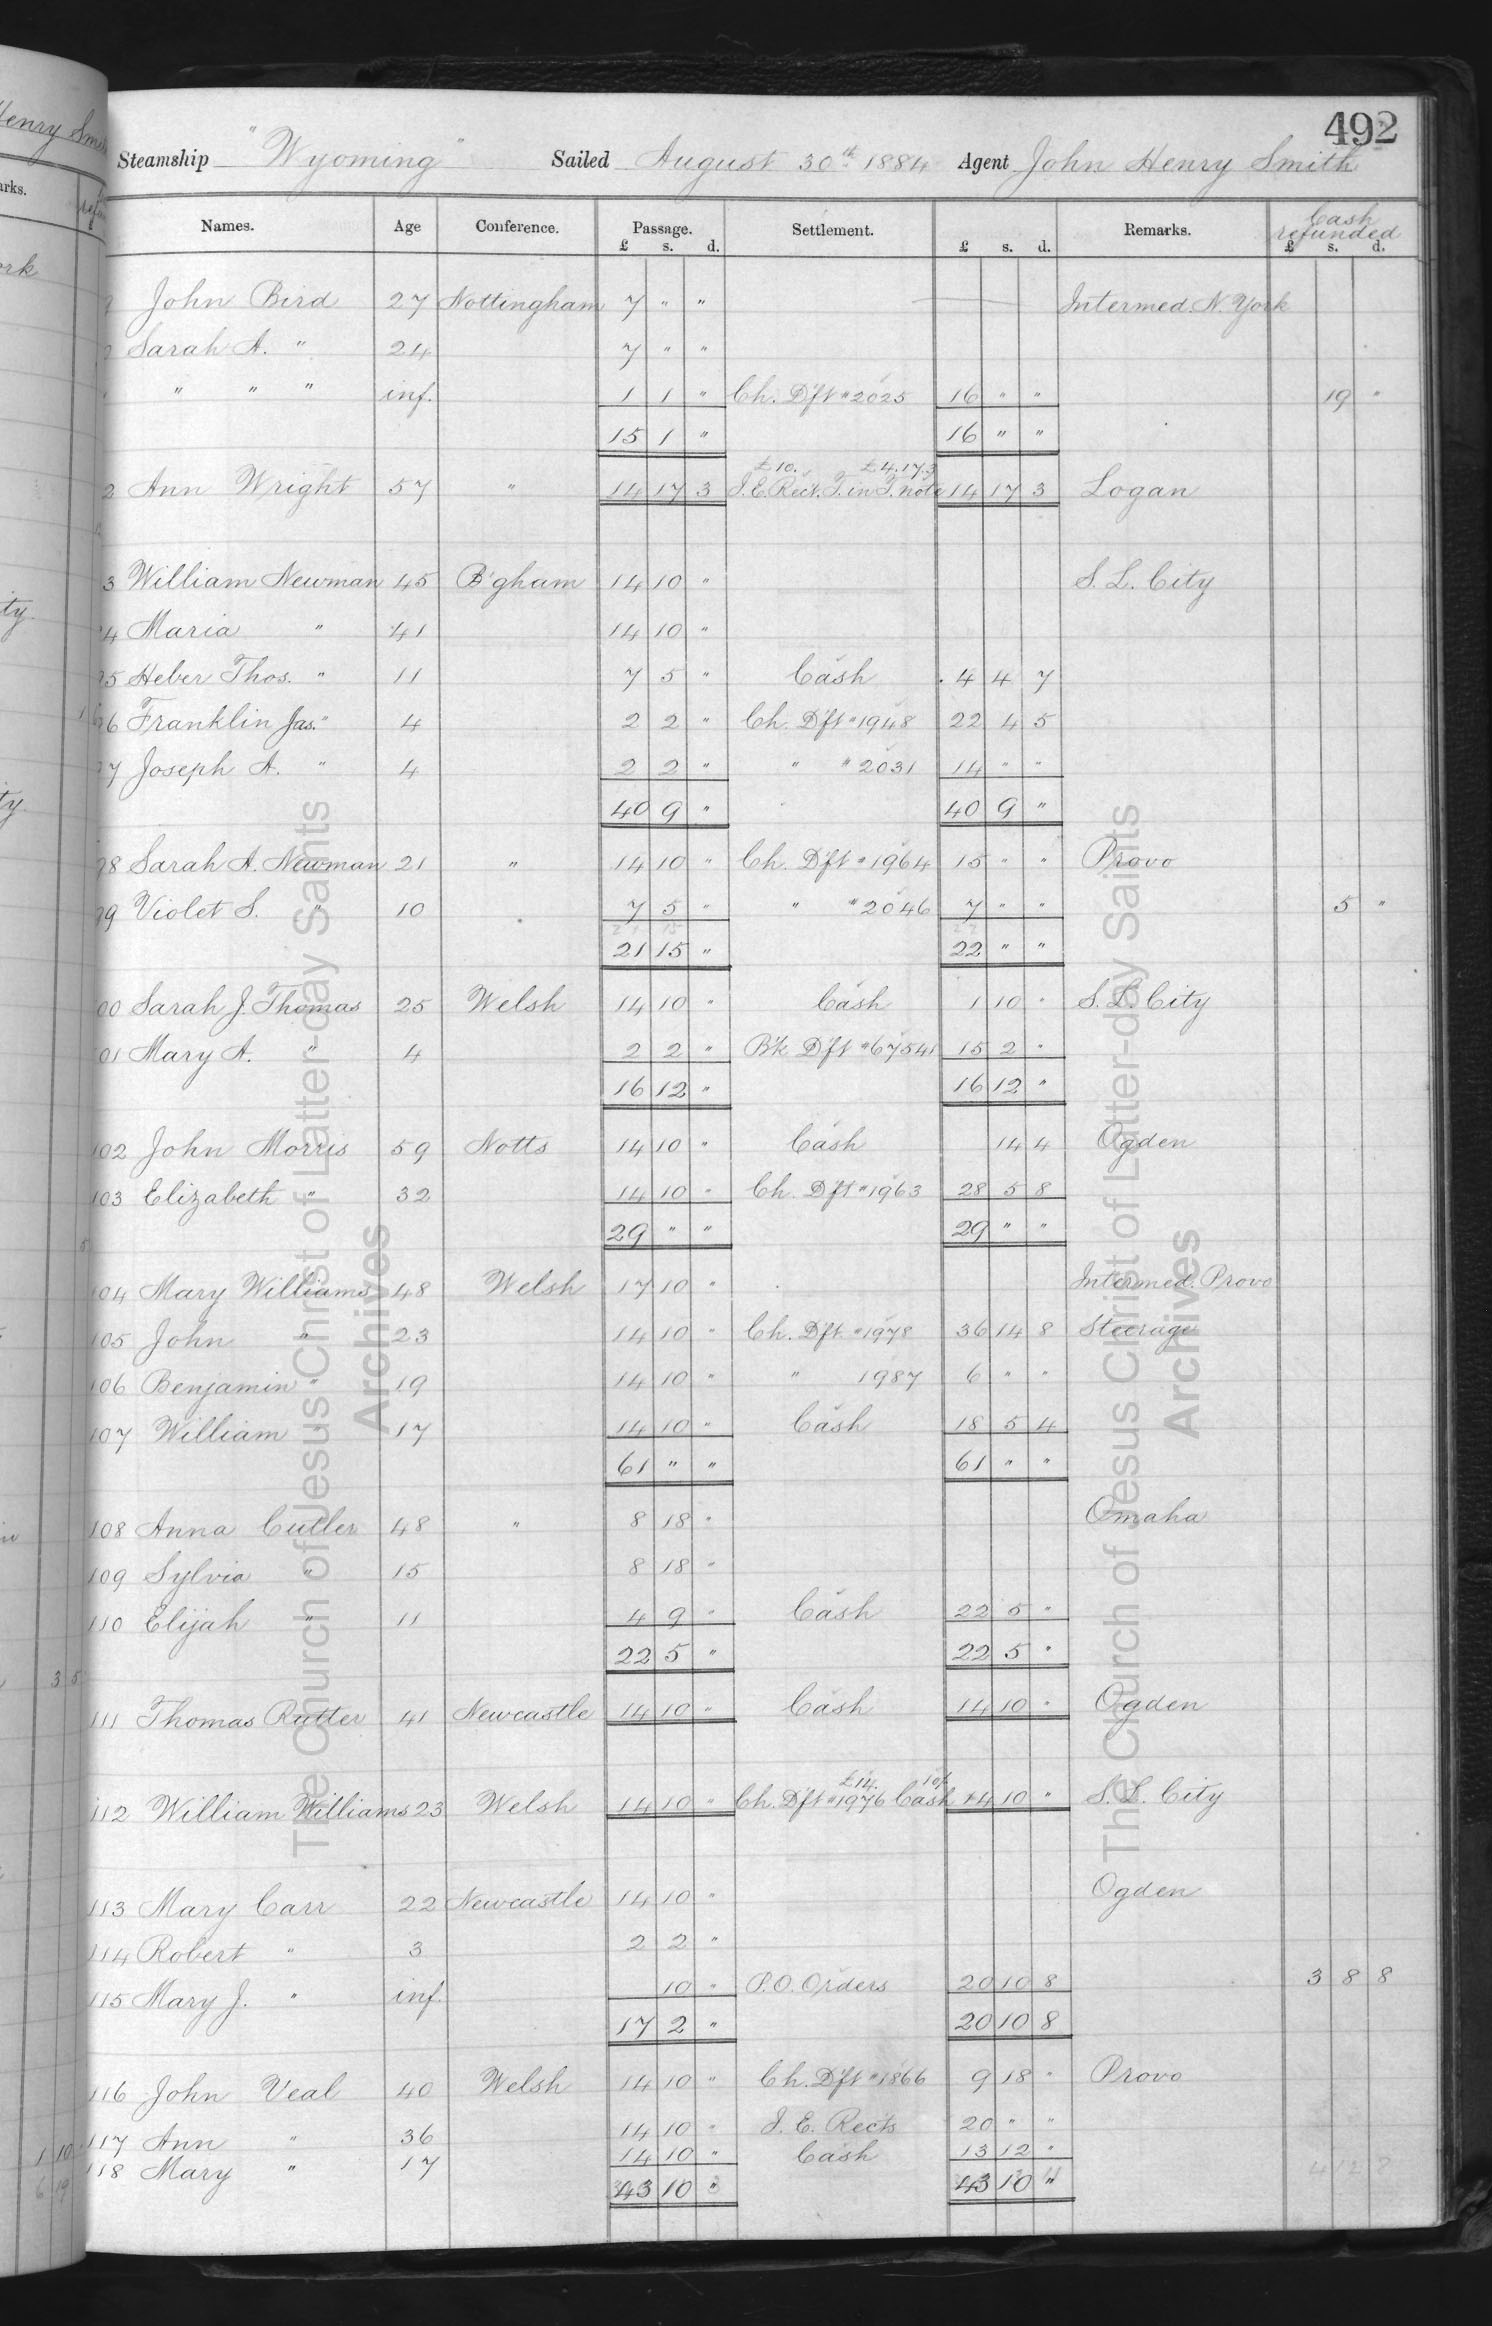 492
Steamship "Wyoming" Sailed August 30th 1884 Agent John Henry Smith
Names. Age Conference. Passage. Settlement. Remarks. Cash refunded
£ s. d. £ s. d. £ s. d.
John Bird 27 Nottingham 7 " " Intermed. N. York
Sarah A. " 24 7 " "
" " " inf. 1 1 " Ch. Dft " 2025 16 " " 19 "
15 1 " 16 " "
£10. £4.17.3
2 Ann Wright 57 " 14 17 3 I.E. Rect. T. in T. note 14 17 3 Logan
3 William Newman 45 B'gham 14 10 " S. L. City
4 Maria " 41 14 10 "
95 Heber Thos. " 11 7 5 " Cash 4 4 7
96 Franklin Jas. " 4 2 2 " Ch. Dft " 1948 22 4 5
97 Joseph A. " 4 2 2 " " " 2031 14 " "
40 9 " 40 9 "
98 Sarah A. Newman 21 " 14 10 " Ch. Dft " 1964 15 " " Provo
99 Violet S. " 10 7 5 " " " 2046 7 " " 5 "
21 15 " 22 " "
00 Sarah J. Thomas 25 Welsh 14 10 " Cash 1 10 " S. L. City
01 Mary A. " 4 2 2 " B'k Dft " 67541 15 2 "
16 12 " 16 12 "
102 John Morris 59 Notts 14 10 " Cash 14 4 Ogden
103 Elizabeth " 32 14 10 " Ch. Dft " 1963 28 5 8
29 " " 29 " "
104 Mary Williams 48 Welsh 17 10 " Intermed. Provo
105 John " 23 14 10 " Ch. Dft. " 1978 36 14 8 Steerage
106 Benjamin " 19 14 10 " " 1987 6 " "
107 William " 17 14 10 " Cash 18 5 4
61 " " 61 " "
108 Anna Cutler 48 " 8 18 " Omaha
109 Sylvia " 15 8 18 "
110 Elijah " 11 4 9 " Cash 22 5 "
22 5 " 22 5 "
111 Thomas Rutter 41 Newcastle 14 10 " Cash 14 10 " Ogden
£14. 10/
112 William Williams 23 Welsh 14 10 " Ch. Dft " 1976 Cash 14 10 " S. L. City
113 Mary Carr 22 Newcastle 14 10 " Ogden
114 Robert " 3 2 2 "
115 Mary J. " inf. 10 " P.O. Orders 20 10 8 3 8 8
17 2 " 20 10 8
116 John Veal 40 Welsh 14 10 " Ch. Dft " 1866 9 18 " Provo
117 Ann " 36 14 10 " I. E. Rects 20 " "
118 Mary " 17 14 10 " Cash 13 12 "
43 10 " 43 10 " 4 12 8
The Church of Jesus Christ of Latter-day Saints
Archives
The Church of Jesus Christ of Latter-day Saints
Archives